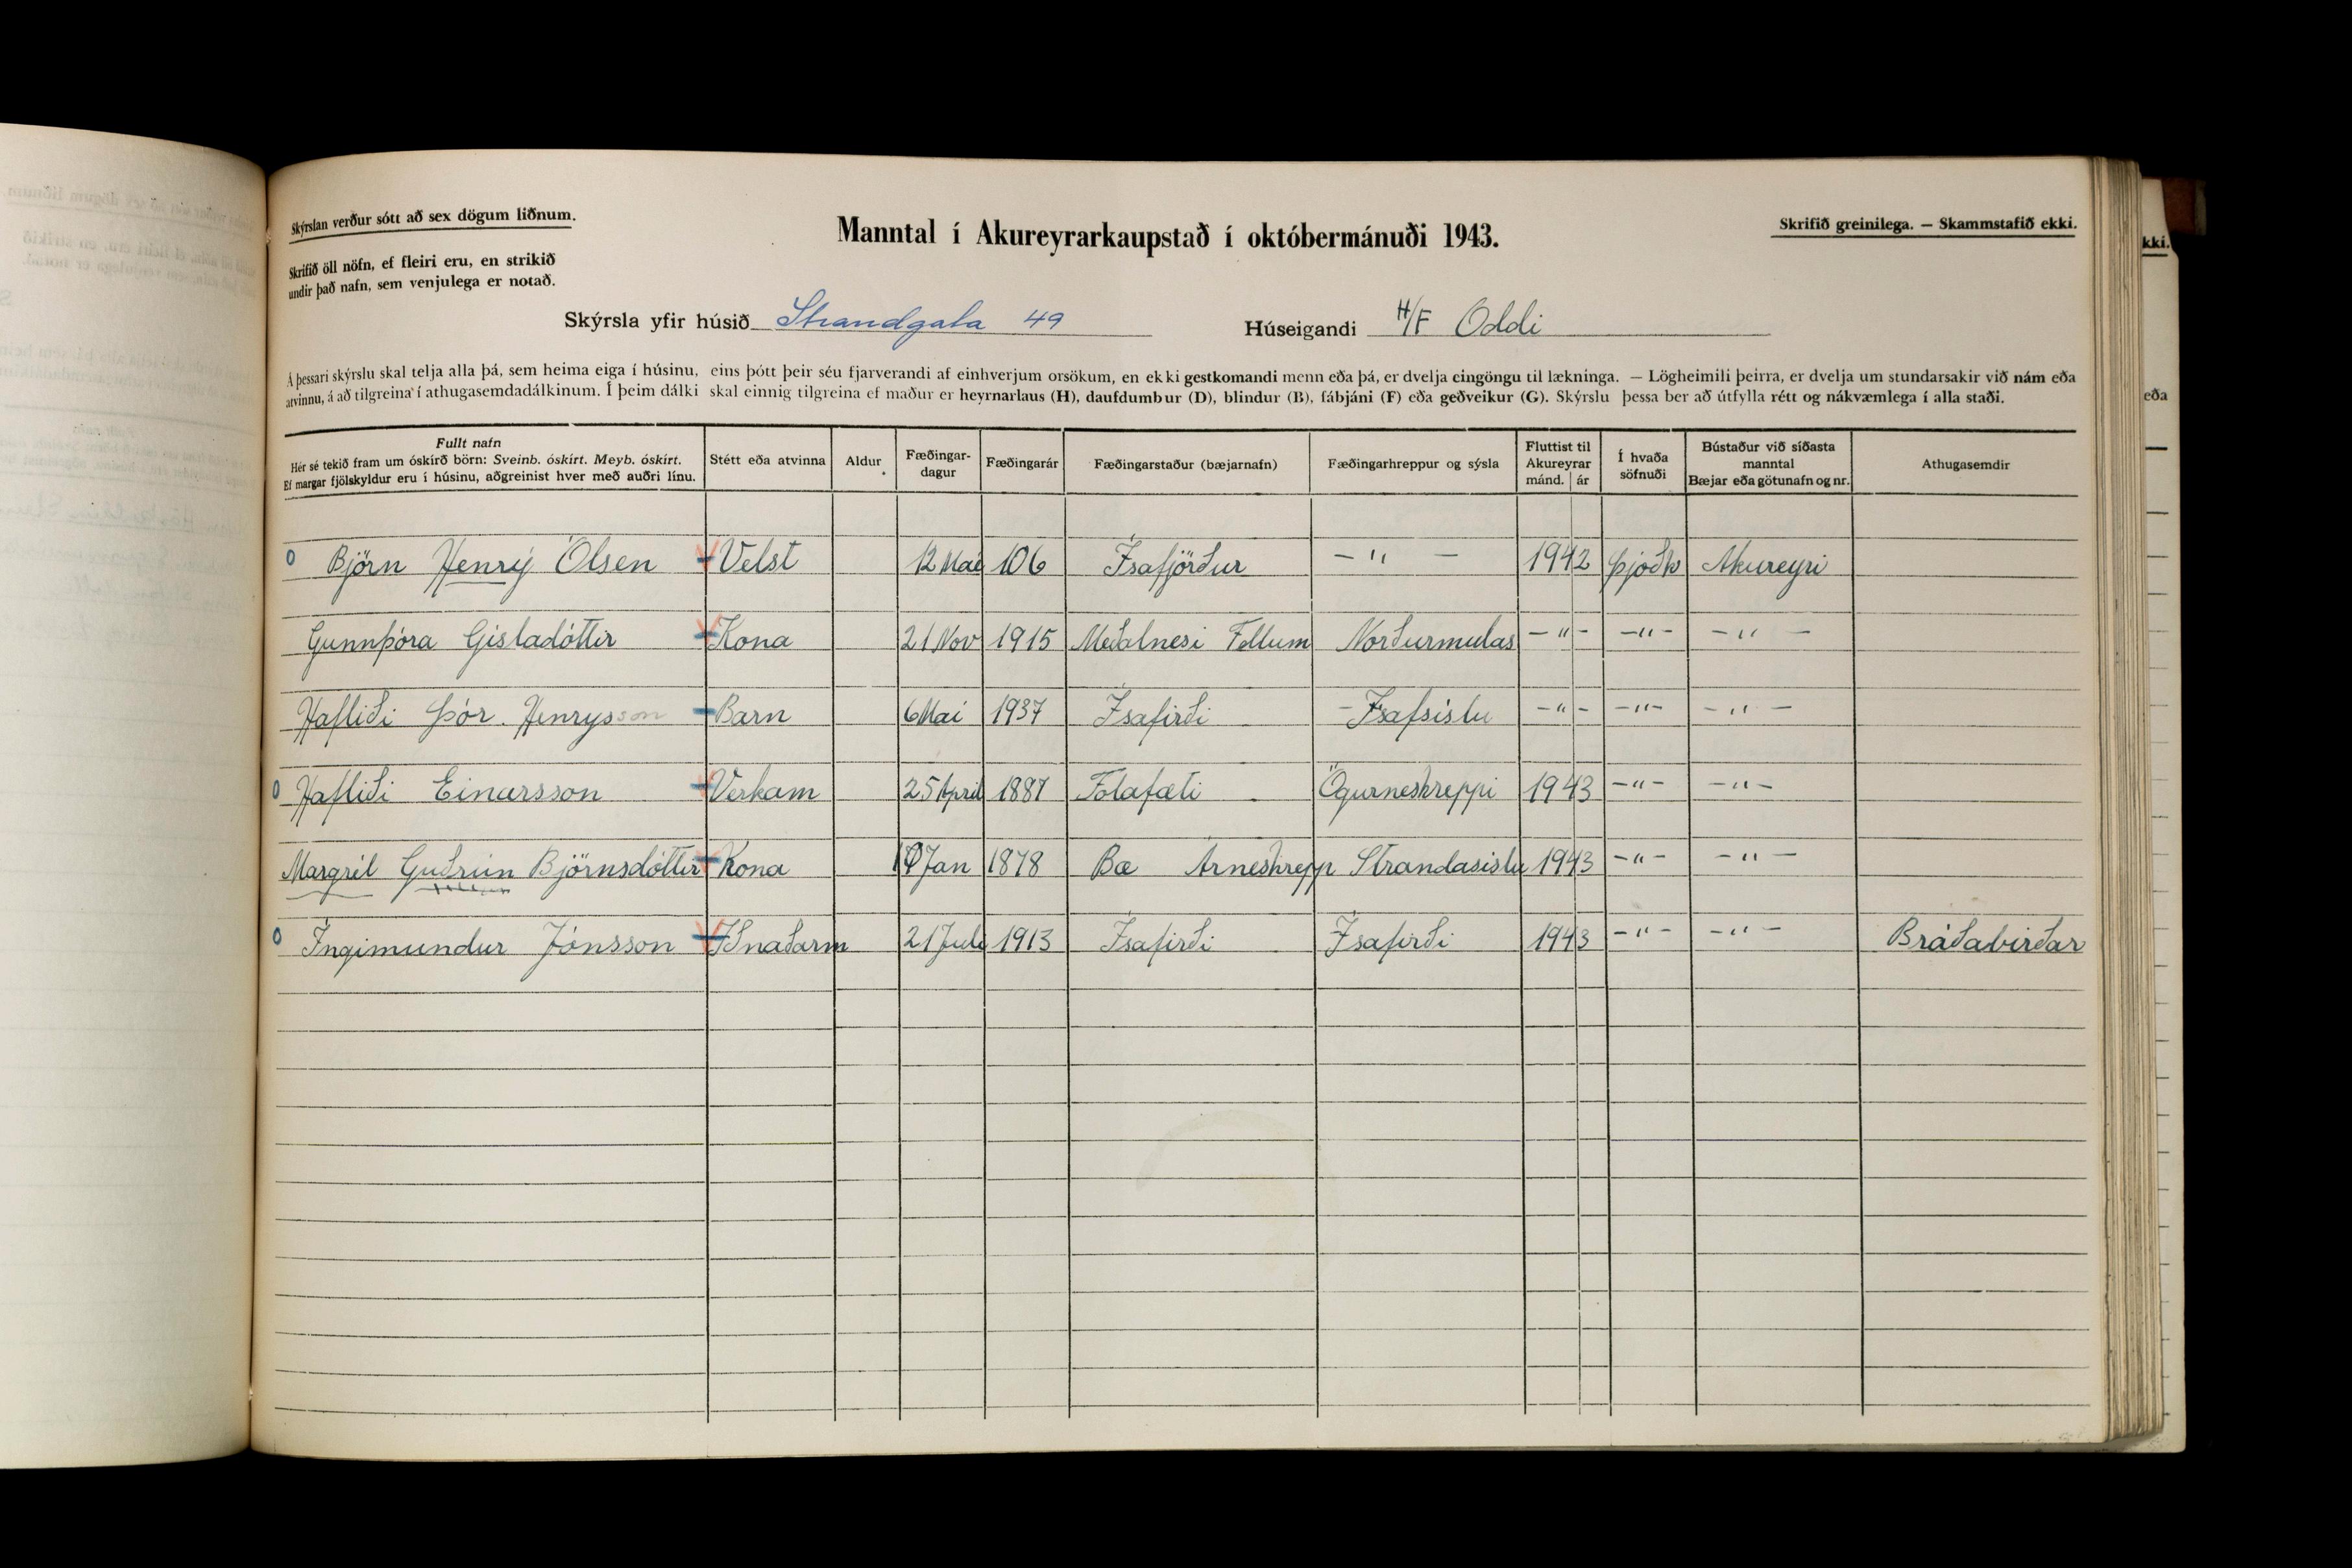 Skýrslan verður sótt að sex dögum liðnum.
Manntal í Akureyrarkaupstað í októbermánuði 1943.
Skrifið greinilega. — Skammstafið ekki.
Skrifið öll nöfn, ef fleiri eru, en strikið
undir það nafn, sem venjulega er notað.
Skýrsla yfir húsið Strandgata 49 Húseigandi H/F Oddi
Á þessari skýrslu skal telja alla þá, sem heima eiga í húsinu, eins þótt þeir séu fjarverandi af einhverjum orsökum, en ekki gestkomandi menn eða þá, er dvelja eingöngu til lækninga. — Lögheimili þeirra, er dvelja um stundarsakir við nám eða
atvinnu, á að tilgreina í athugasemdadálkinum. Í þeim dálki skal einnig tilgreina ef maður er heyrnarlaus (H), daufdumbur (D), blindur (B), fábjáni (F) eða geðveikur (G). Skýrslu þessa ber að útfylla rétt og nákvæmlega í alla staði.
Fullt nafn
Hér sé tekið fram um óskírð börn: Sveinb. óskírt. Meyb. óskírt.
Ef margar fjölskyldur eru í húsinu, aðgreinist hver með auðri línu.
Stétt eða atvinna
Aldur
Fæðingar-
dagur
Fæðingarár
Fæðingarstaður (bæjarnafn)
Fæðingarhreppur og sýsla
Fluttist til
Akureyrar
mánd. ár
Í hvaða
söfnuði
Bústaður við síðasta
manntal
Bæjar eða götunafn og nr.
Athugasemdir
Björn Henrý Ólsen Velst 12 Mai 106 Ísafjörður — " — 1942 Þjóðk Akureyri
Gunnþóra Gísladóttir Kona 21 Nov 1915 Meðalnesi Fellum Norðurmulas — " — — " — — " —
Hafliði Þór. Henrysson Barn 6 Mai 1937 Ísafirði Ísafsíslu — " — — " — — " —
Hafliði Einarsson Verkam 25 April 1887 Folafæti Ögurneshreppi 1943 — " — — " —
Margrét Guðrún Björnsdóttir Kona Jan 1878 Bæ Árneshrepp Strandasislu 1943 — " — — " —
Ingimundur Jónsson Iðnaðarm 21 Juli 1913 Ísafirði Ísafirði 1943 — " — — " — Bráðabirðar
kki.
eða